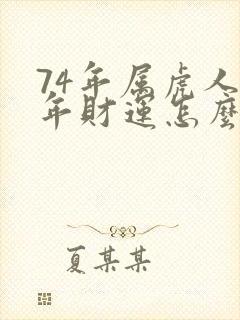 74年属虎人
年财运怎麽
夏某某